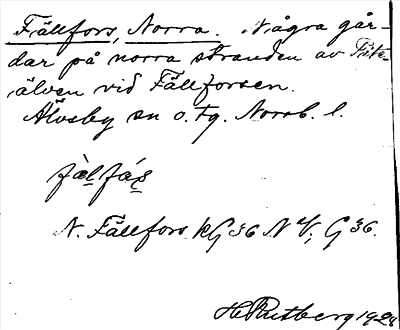 Fällfors, Norra. Några går-
dar på norra stranden av Pite
älven vid Fällforsen.
Älvsby sn o. tg. Norrb. l.
fàl fás
N. Fällfors KG 36 N G 36.
H Rutberg 1924